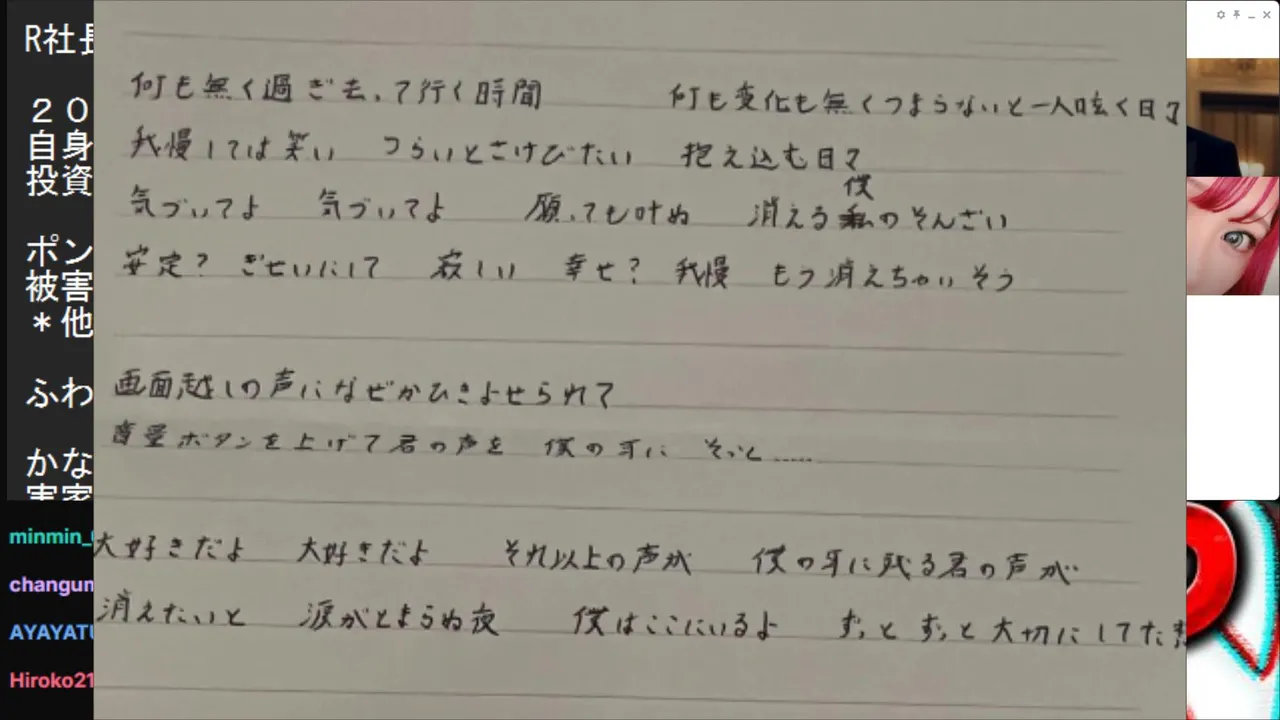 R社長
２０
自身
投資
ポン
被害
＊他
ふわ
かな
実家
minmin_
changum
AYAYATU
Hiroko21
何も無く過ぎ去って行く時間　何も変化も無くつまらないと一人呟く日々
我慢しては笑い　つらいとさけびたい　抱え込む日々
気づいてよ　気づいてよ　願っても叶ぬ　消える僕のそんざい
安定？ぎせいにして　寂しい　幸せ？我慢　もう消えちゃいそう
画面越しの声になぜかひきよせられて
音量ボタンを上げて君の声を　僕の耳に　そっと……
大好きだよ　大好きだよ　それ以上の声が　僕の耳に残る君の声が
消えたいと　涙がとまらぬ夜　僕はここにいるよ　ずっとずっと大切にしてた